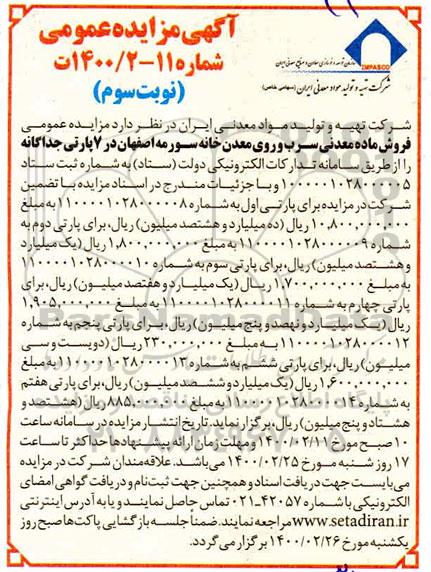 آگهی مزایده عمومی
شماره ۱۱-۱۴۰۰/۲ت
(نوبت سوم)
IMPASCO
سازمان توسعه و نوسازی معادن و صنایع معدنی ایران
شرکت تهیه و تولید مواد معدنی ایران (سهامی خاص)
شرکت تهیه و تولید مواد معدنی ایران در نظر دارد مزایده عمومی
فروش ماده معدنی سرب و روی معدن خانه سورمه اصفهان در ۷ پارتی جداگانه
را از طریق سامانه تدارکات الکترونیکی دولت (ستاد) به شماره ثبت ستاد
و با جزئیات مندرج در اسناد مزایده با تضمین
شرکت در مزایده برای پارتی اول به شماره
۱۰,۸۰۰,۰۰۰,۰۰۰ ریال (ده میلیارد و هشتصد میلیون) ریال، برای پارتی دوم به
شماره به مبلغ ۱,۸۰۰,۰۰۰,۰۰۰ ریال (یک میلیارد
و هشتصد میلیون) ریال، برای پارتی سوم به شماره
به مبلغ ۱,۷۰۰,۰۰۰,۰۰۰ ریال (یک میلیارد و هفتصد میلیون) ریال، برای
پارتی چهارم به شماره به مبلغ ۱,۹۰۵,۰۰۰,۰۰۰
ریال (یک میلیارد و نهصد و پنج میلیون) ریال، برای پارتی پنجم به شماره
به مبلغ ۲۳۰,۰۰۰,۰۰۰ ریال (دویست و سی
میلیون) ریال، برای پارتی ششم به شماره به مبلغ
۱,۶۰۰,۰۰۰,۰۰۰ ریال (یک میلیارد و ششصد میلیون) ریال، برای پارتی هفتم
به شماره به مبلغ ۸۸۵,۰۰۰,۰۰۰ ریال (هشتصد و
هشتاد و پنج میلیون) ریال، برگزار نماید. تاریخ انتشار مزایده در سامانه ساعت
۱۰ صبح مورخ ۱۴۰۰/۰۲/۱۱ و مهلت زمان ارائه پیشنهادها حداکثر تا ساعت
۱۷ روز شنبه مورخ ۱۴۰۰/۰۲/۲۵ می‌باشد. علاقه‌مندان شرکت در مزایده
می‌بایست جهت دریافت اسناد و همچنین جهت ثبت نام و دریافت گواهی امضای
الکترونیکی با شماره ۴۲۰۵۷-۰۲۱ تماس حاصل نمایند و یا به آدرس اینترنتی
www.setadiran.ir مراجعه نمایند. ضمناً جلسه بازگشایی پاکت‌ها صبح روز
یکشنبه مورخ ۱۴۰۰/۰۲/۲۶ برگزار می‌گردد.